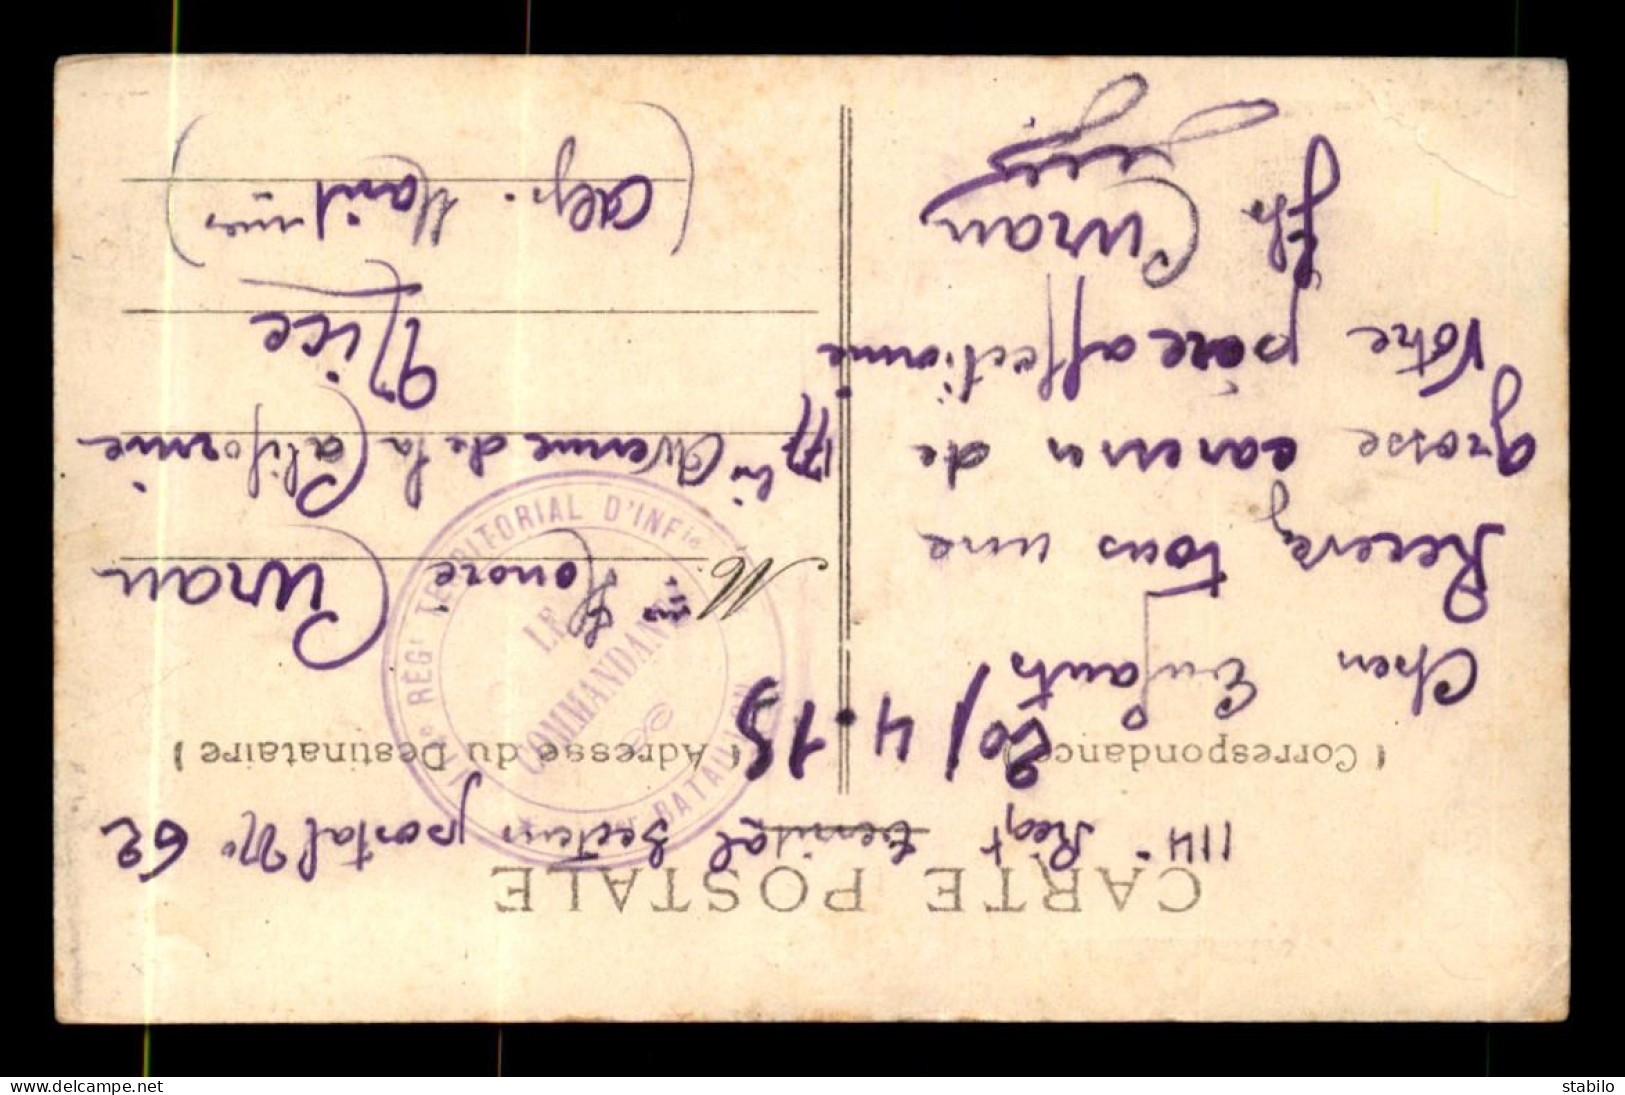 CARTE POSTALE
114e Regt territal Secteur postal No 62
(Correspondance)
20/4.15
Chers Enfants
Recevez tous une
grosse caresse de
Votre père affectionné
Curau
(Adresse du Destinataire)
M Honoré Curau
177 bis Avenue de la Californie
Nice
(Alp. Maritimes)
114e RÉGt TERRITORIAL D'INFie
BATAILLON
LE
COMMANDANT
www.delcampe.net
stabilo